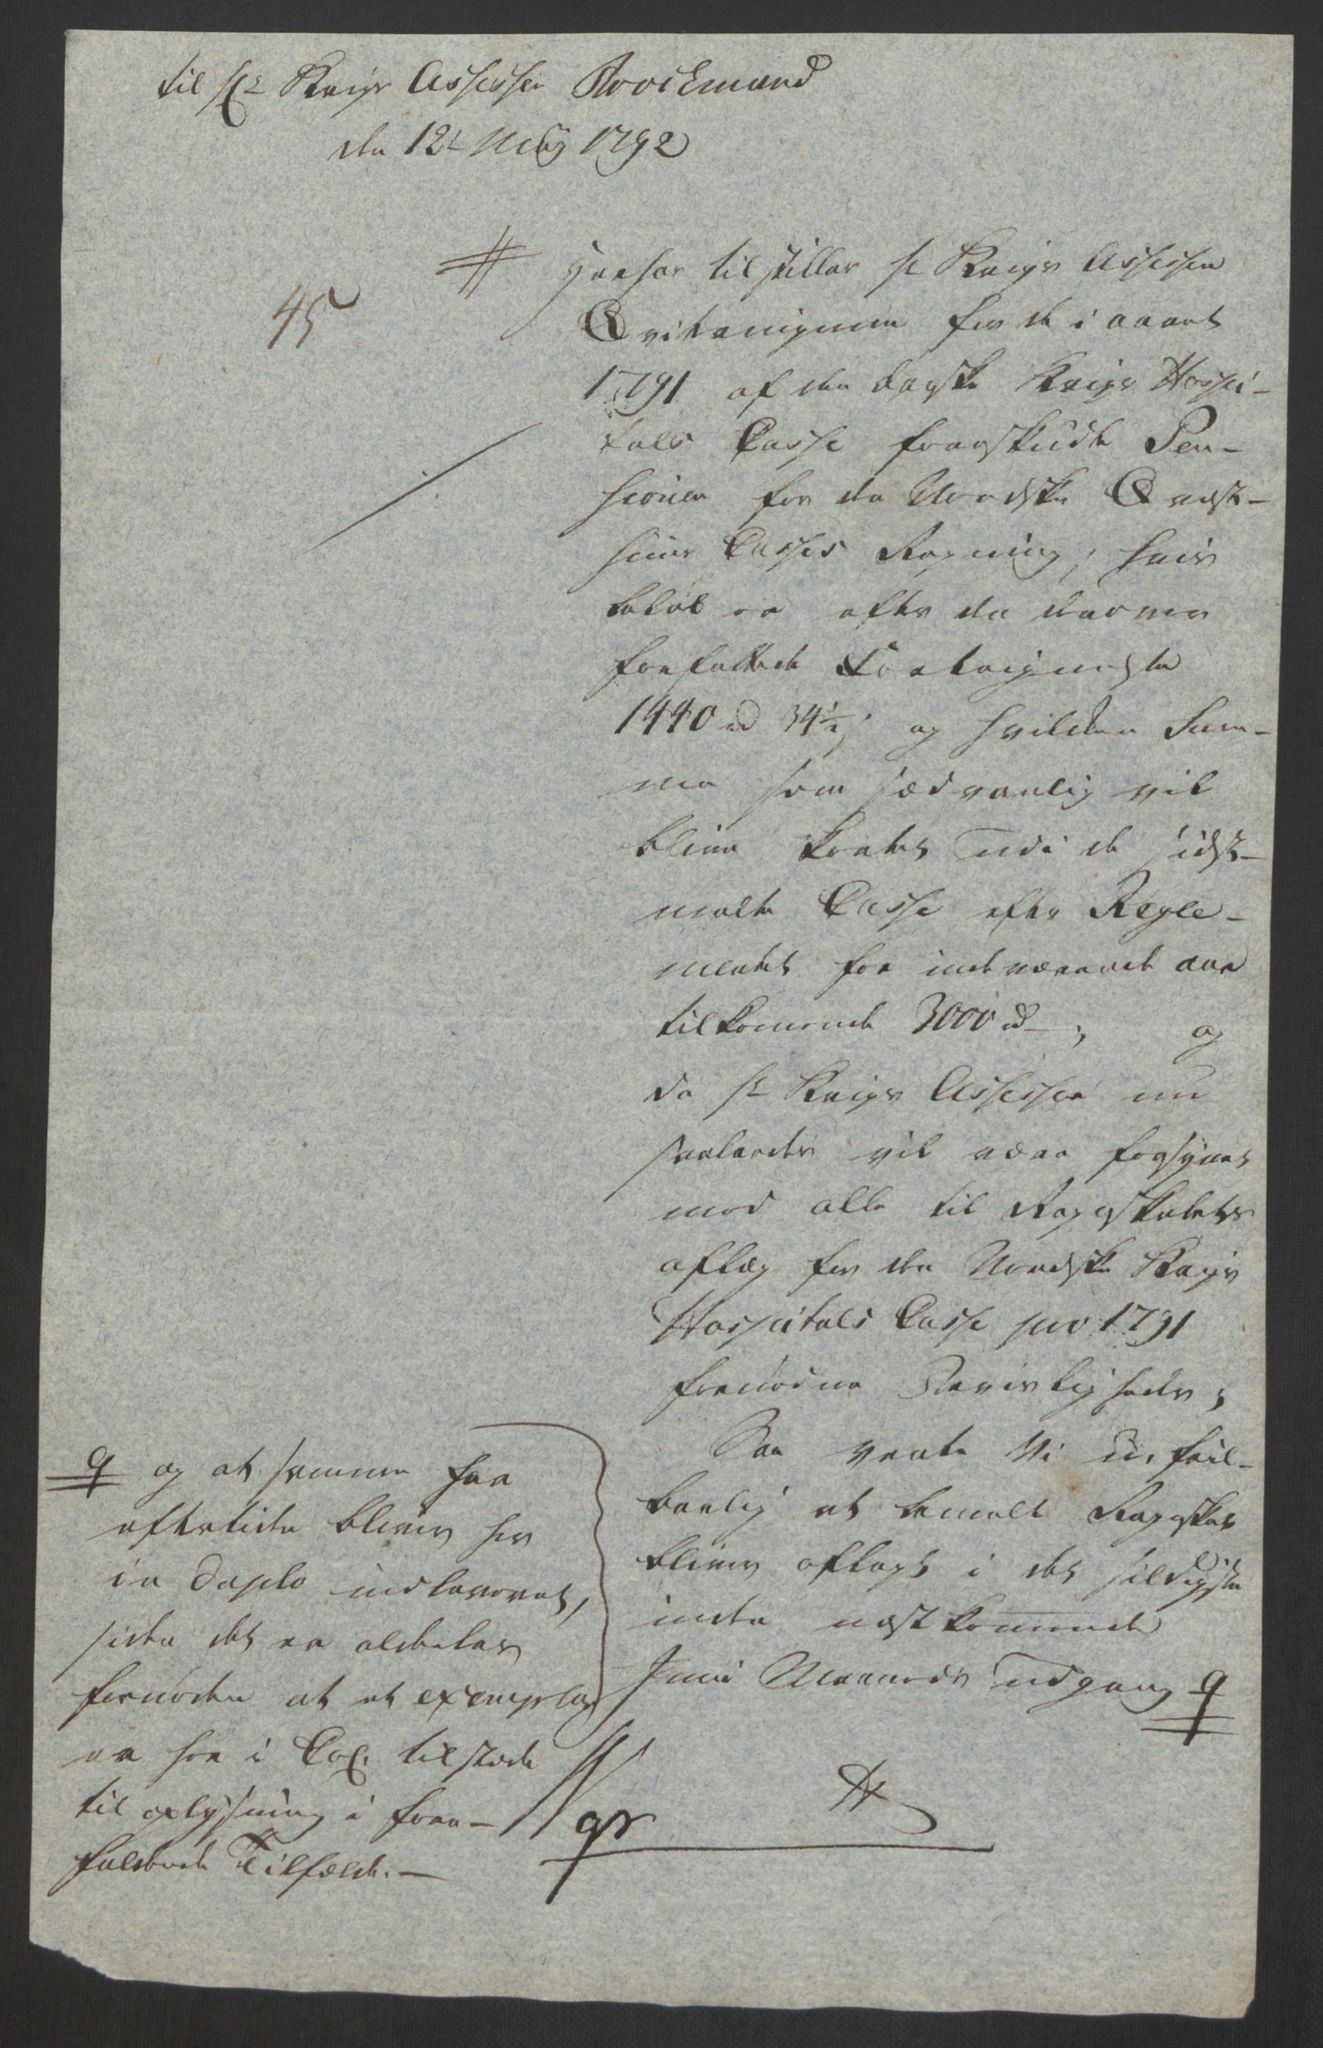 til Hr Krigs Assessor Brockmand
den 12t May 1792
45
Herhos tilstilles Hr Krigs Assessor
Qvitteringerne for de i aaret
1791 af den danske Krigs Hospi-
tals Casse forskudte Pen-
sioner for den Nordske Qvæst-
huus Casses Regning, hvis
beløb er efter den derover
forfattede Fortegnelse
1440 rd 34½ s og hvilken Sum-
ma som sædvanlig vil
blive kortet udi de sidst-
meldte Casse efter Regle-
mentet for indeværende aar
tilkommende 3000 rd; og
da Hr Krigs Assessor nu
saaledes vil være forsynet
med alle til Regnskabets
aflæg for den Nordske Krigs
Hospitals Casse pro 1791
fornødne Beviisligheder,
Saa vente Vi u-feil-
barlig at bemelte Regnskab
bliver aflagt i det sildigste
inden næstkommende
Junii Maaneds udgang q
q og at samme for
eftertiden bliver her
in duplo indleveret,
siden det er aldeles
fornøden at et exemplar
er her i Col. tilstede
til oplysning i fore-
faldende Tilfælde. -